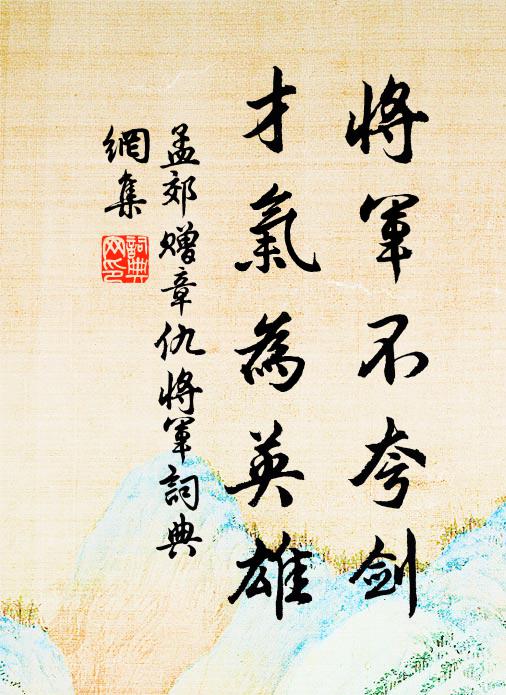 將軍不夸剑
才氣為英雄
孟郊赠章仇將軍詞典
網集
詞典网印